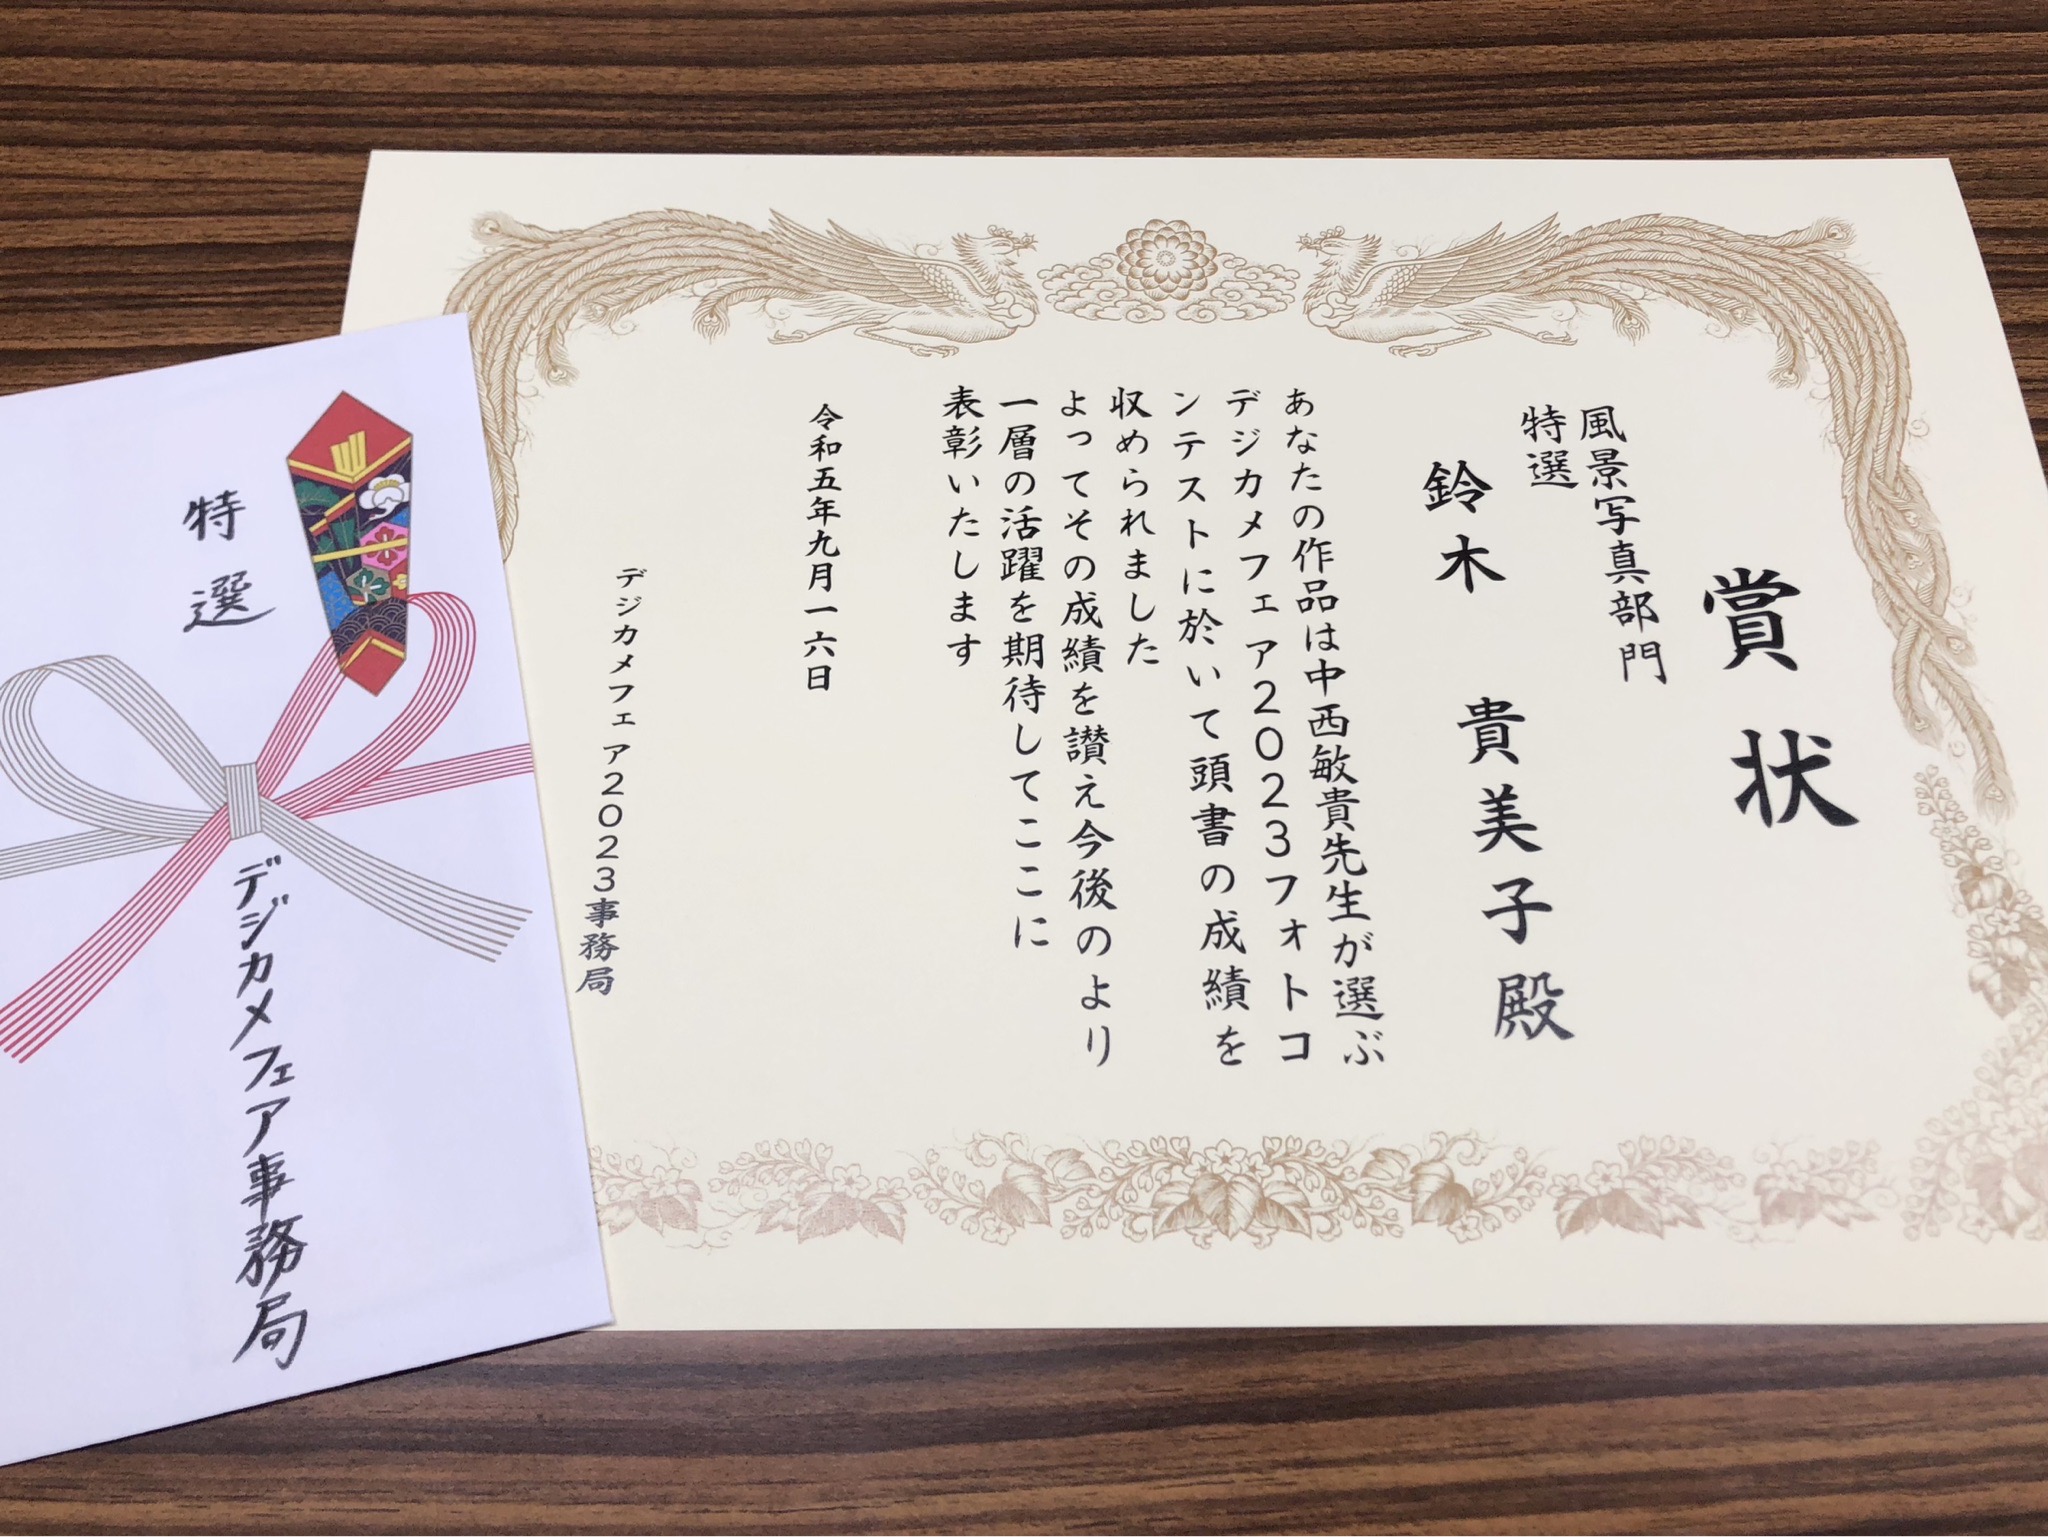 賞状
風景写真部門
特選
鈴木 貴美子殿
あなたの作品は中西敏貴先生が選ぶ
デジカメフェア2023フォトコ
ンテストに於いて頭書の成績を
収められました
よってその成績を讃え今後のより
一層の活躍を期待してここに
表彰いたします
令和五年九月一六日
デジカメフェア2023事務局
特選
デジカメフェア事務局